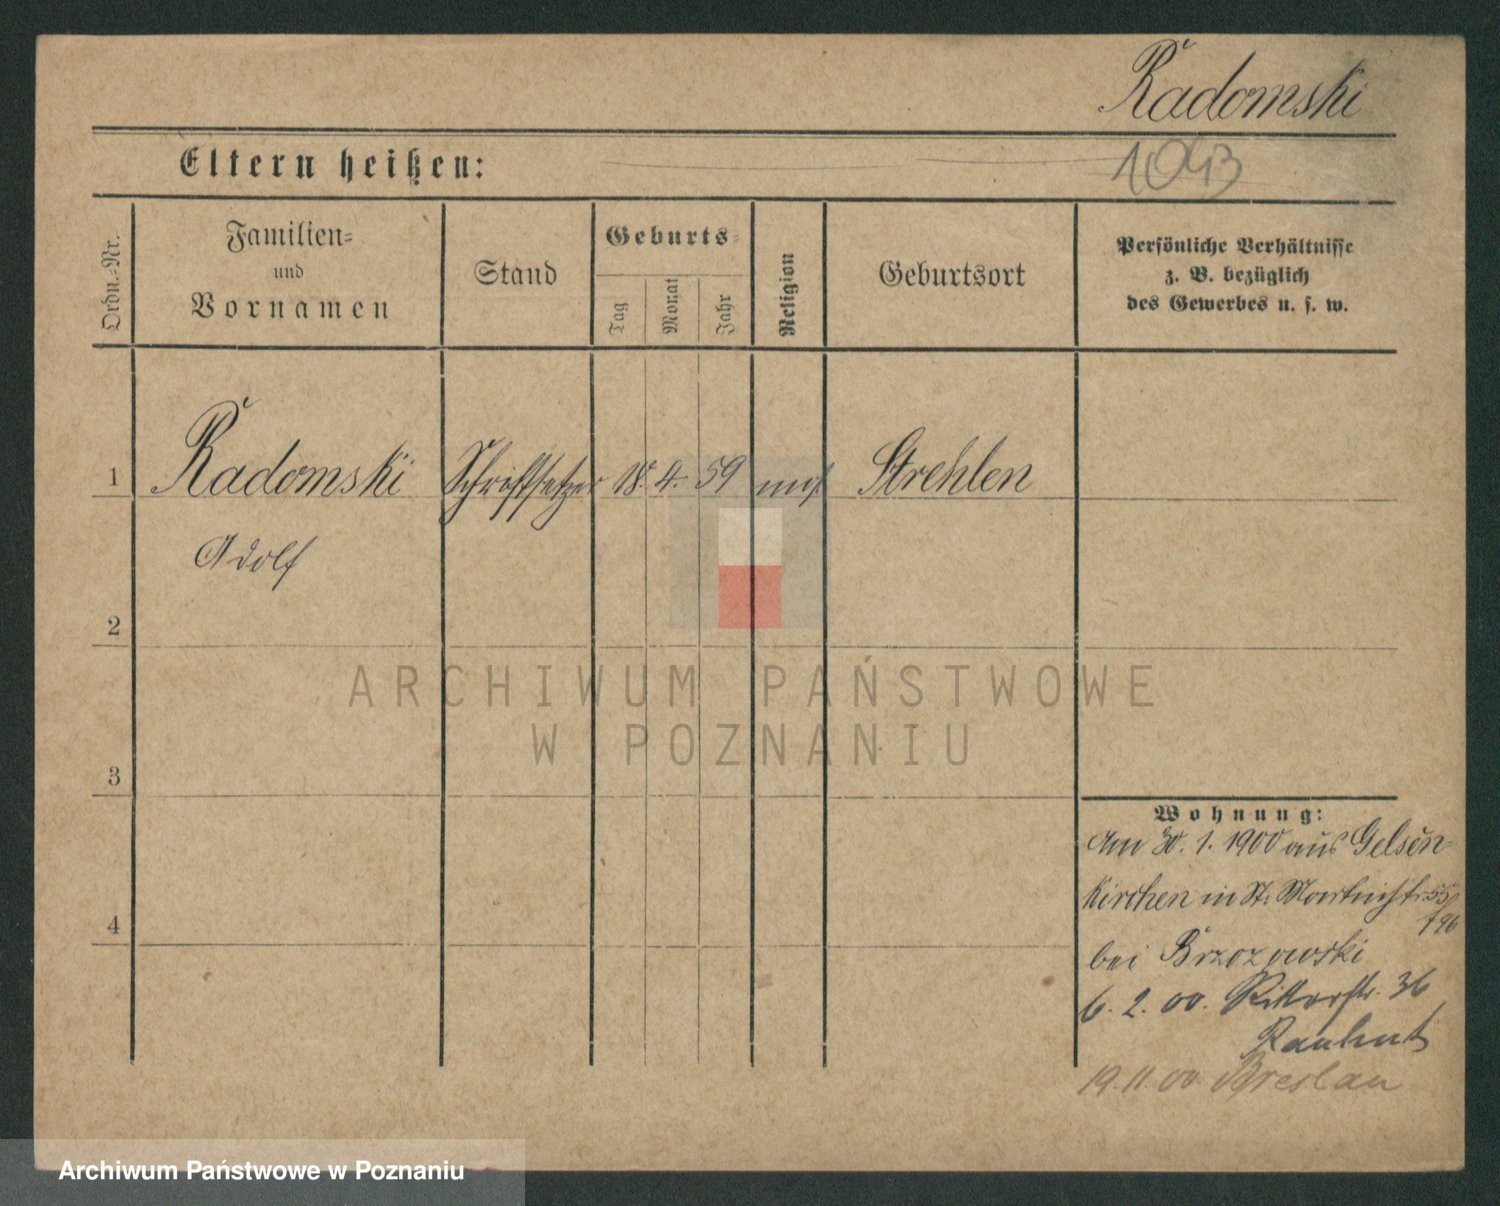 Radomski
1043
Eltern heißen:
Ordn.-Nr.
Familien-
und
Vornamen
Stand
Geburts-
Tag
Monat
Jahr
Religion
Geburtsort
Persönliche Verhältnisse
z. B. bezüglich
des Gewerbes u. s. w.
1
Radomski Schriftsetzer 18. 4. 59 mos Strehlen
Adolf
2
ARCHIWUM PAŃSTWOWE
W POZNANIU
3
Wohnung:
Am 30. 1. 1900 aus Gelsen-
kirchen in St. Martinstr.
4
bei Brzozowski
6. 2. 00. Ritterstr. 36
Rauhut
19. 11. 00 Breslau
Archiwum Państwowe w Poznaniu